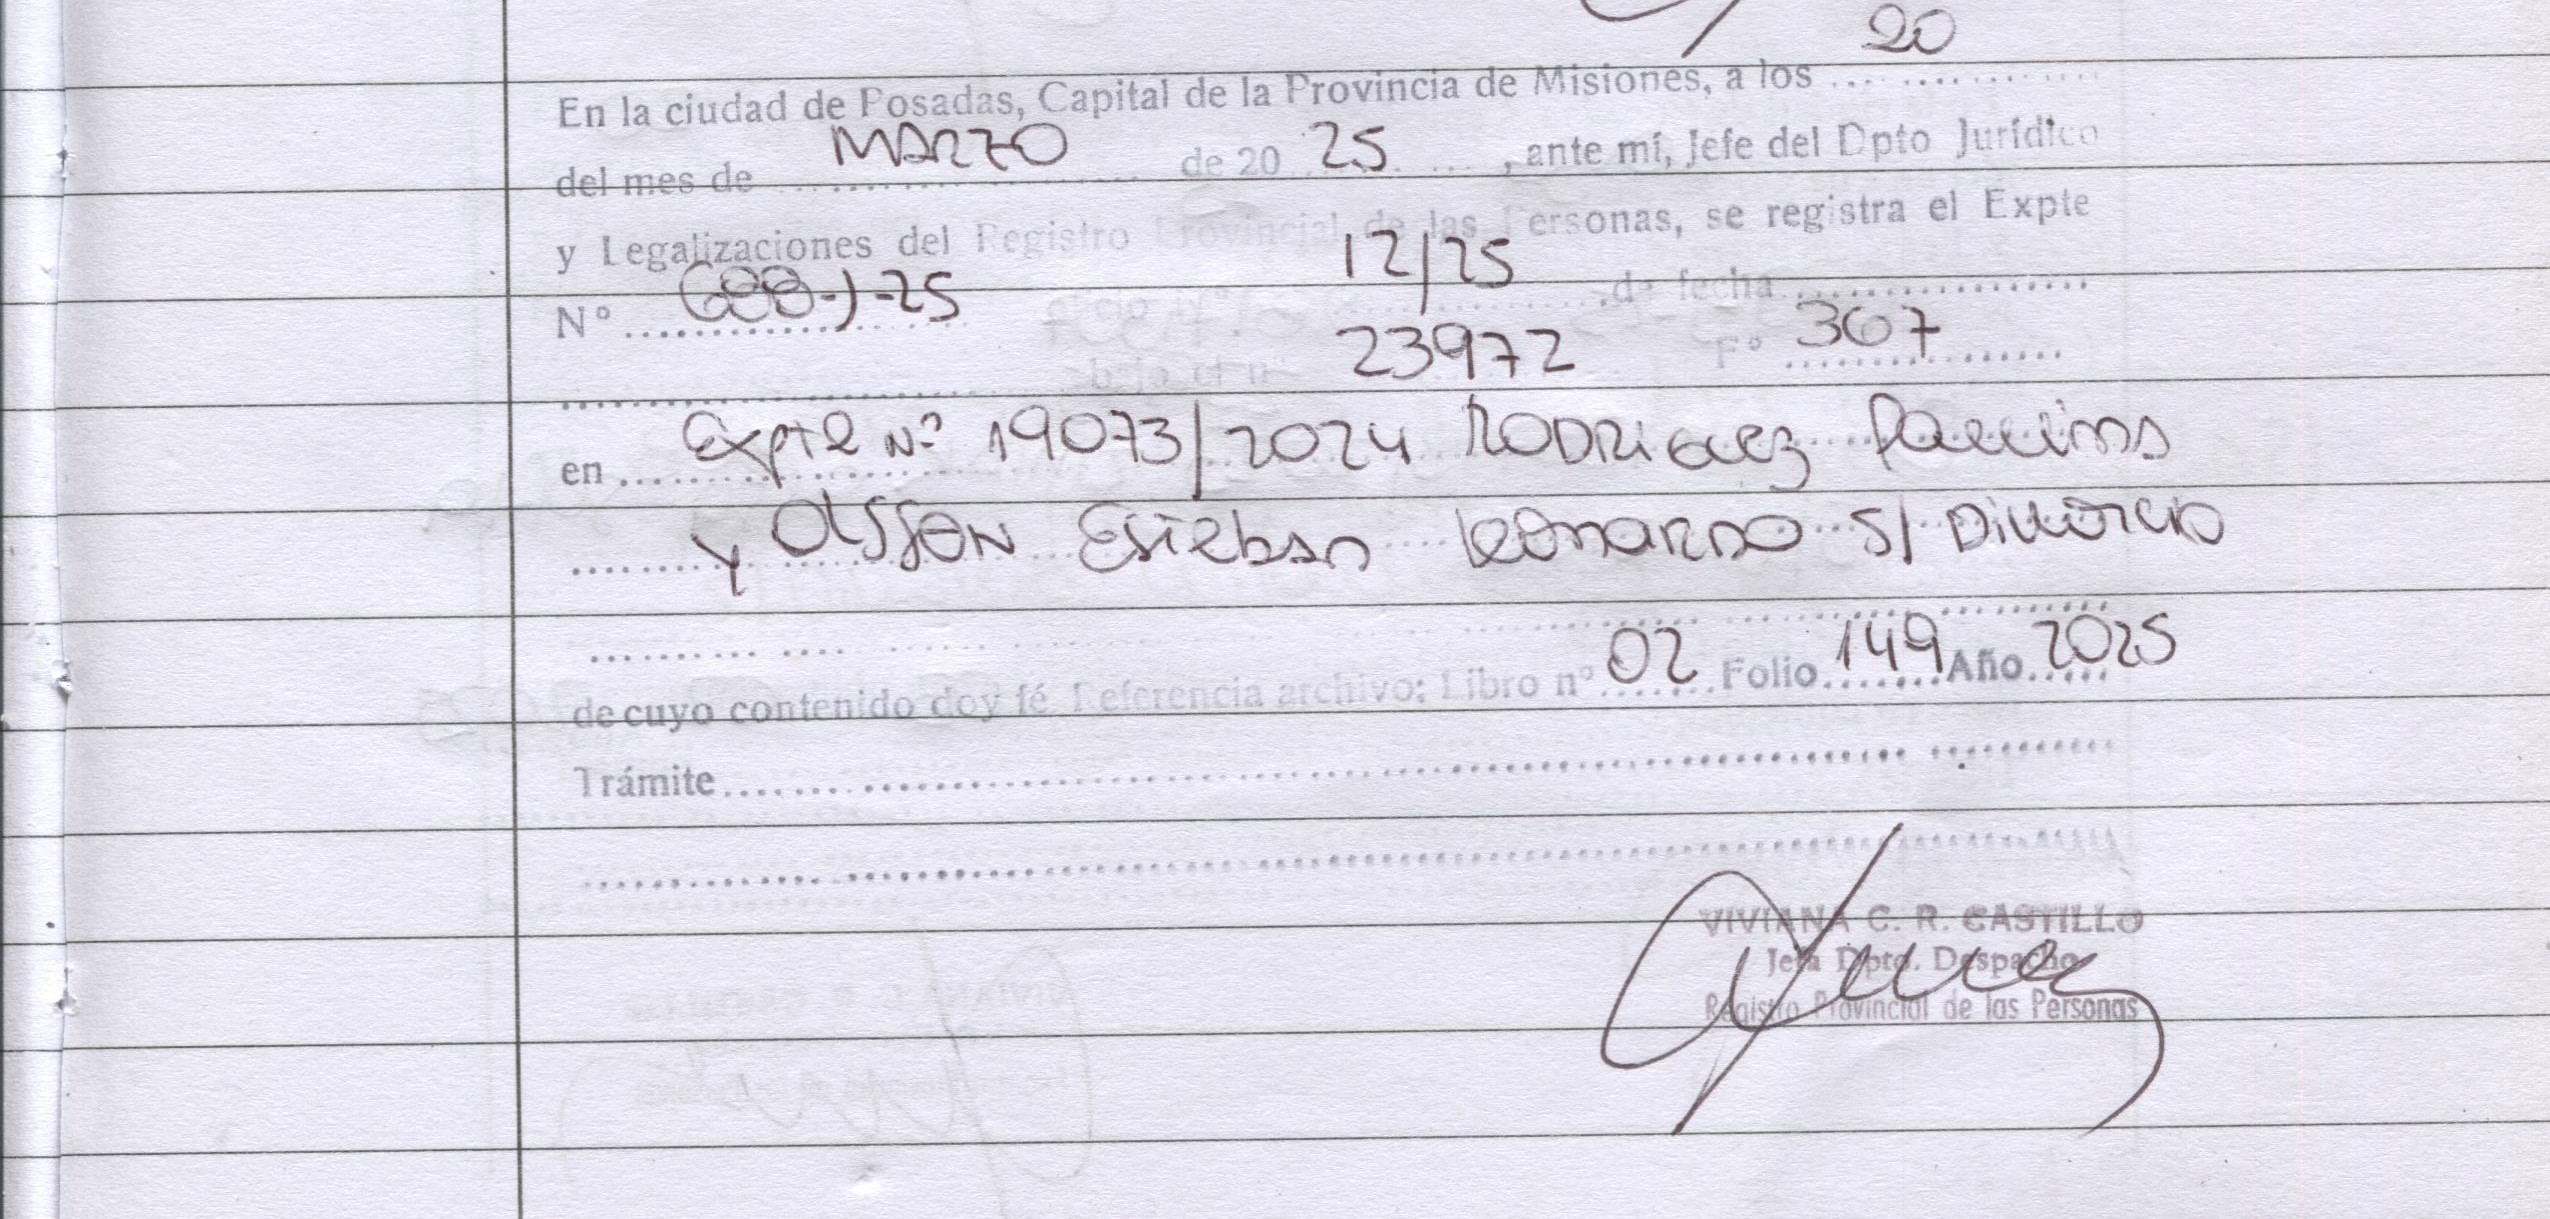 20
En la ciudad de Posadas, Capital de la Provincia de Misiones, a los ...............
del mes de MARZO de 20 25 , ante mí, Jefe del Dpto Jurídico
y Legalizaciones del Registro Provincial de las Personas, se registra el Expte
Nº 688-J-25 oficio Nº 12/25 de fecha ...............
bajo el nº 23972 Fº 367
en Expte Nº 19073/2024 RODRIGUEZ Paulina
y OLSSON Esteban Leonardo S/ Divorcio
de cuyo contenido doy fé. Referencia archivo: Libro nº 02 Folio 149 Año 2025
Trámite
VIVIANA C. R. CASTILLO
Jefa Dpto. Despacho
Registro Provincial de las Personas